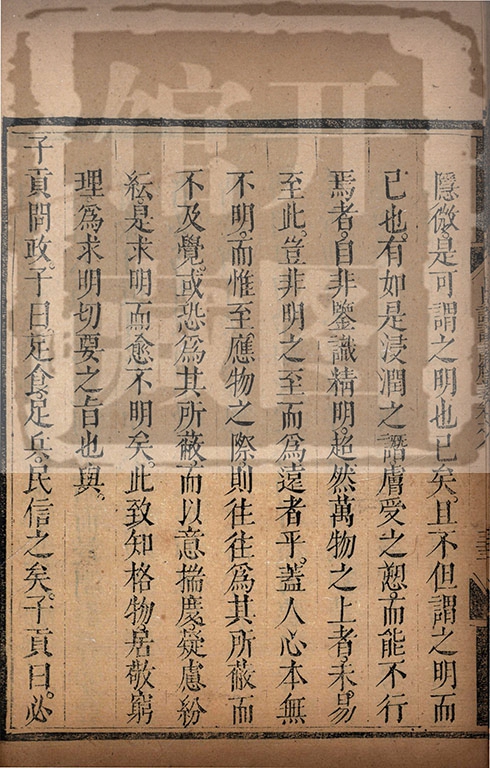 隱微。是可謂之明也已矣。且不但謂之明而
已也。有如是浸潤之譖膚受之愬。而能不行
焉者。自非鑒識精明。超然萬物之上者。未易
至此。豈非明之至而爲遠者乎。蓋人心本無
不明。而惟至應物之際則往往爲其所蔽而
不及覺。或恐爲其所蔽而以意揣度。疑慮紛
紜。是求明而愈不明矣。此致知格物。居敬窮
理爲求明切要之旨也與。
子貢問政。子曰。足食。足兵。民信之矣。子貢曰。必